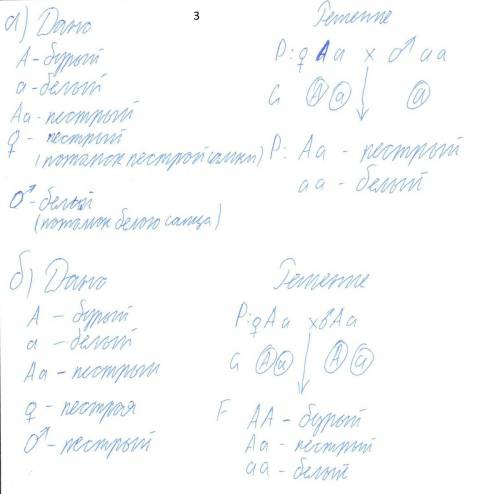 3
а) Дано
А - бурый
а - белый
Аа - пестрый
♀ - пестрый
(потомок пестрой самки)
♂ - белый
(потомок белого самца)
Решение
P: ♀ Аа х ♂ аа
G А а а
P: Аа - пестрый
аа - белый
б) Дано
А - бурый
а - белый
Аа - пестрый
♀ - пестрая
♂ - пестрый
Решение
P: ♀ Аа х ♂ Аа
G А а А а
F АА - бурый
Аа - пестрый
аа - белый